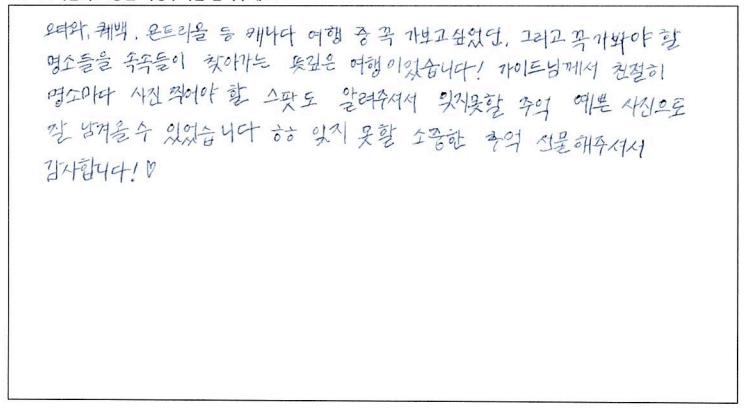 오타와, 퀘백, 몬트리올 등 캐나다 여행 중 꼭 가보고 싶었던, 그리고 꼭 가봐야 할
명소들을 속속들이 찾아가는 뜻깊은 여행이었습니다! 가이드님께서 친절히
명소마다 사진 찍어야 할 스팟도 알려주셔서 잊지못할 추억 예쁜 사진으로
잘 남겨올 수 있었습니다 ㅎㅎ 잊지 못할 소중한 추억 선물해주셔서
감사합니다! ♡